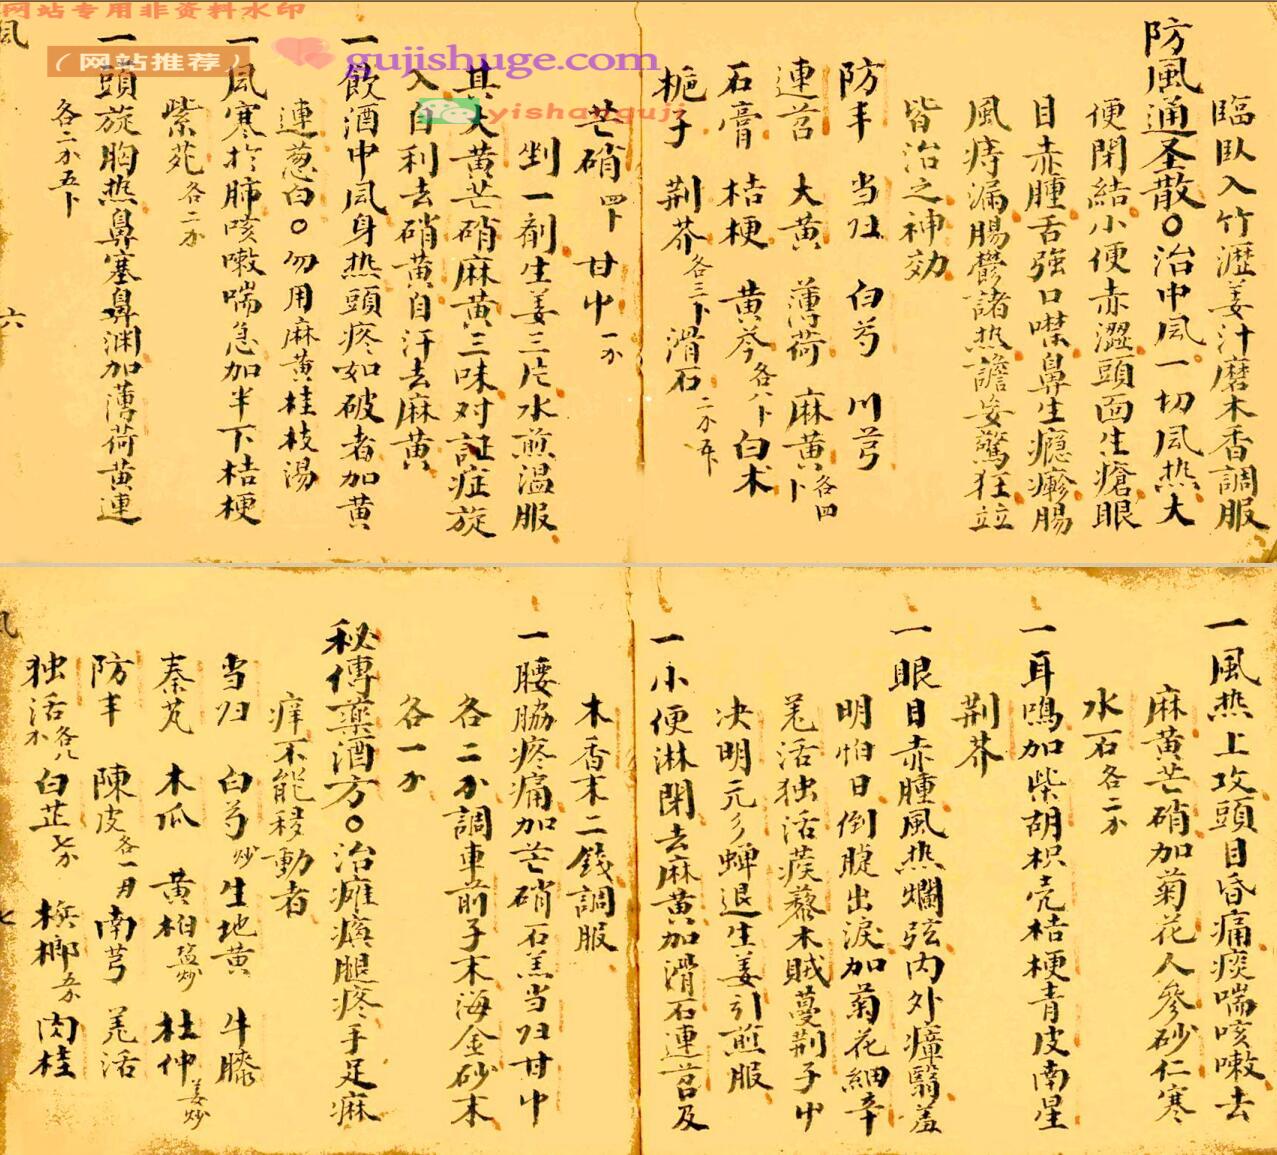 网站专用非资料水印
（网站推荐）
gujishuge.com
yishanguji
臨臥入竹瀝姜汁磨木香調服
防風通圣散○治中風一切風热大
便閉結小便赤澀頭面生瘡眼
目赤腫舌強口噤鼻生瘾瘮腸
風痔漏腸鬱諸热譫妄驚狂並
皆治之神効
防丰 当归 白芍 川芎
連召 大黄 薄荷 麻黄各四卜
石膏 桔梗 黄芩各八卜 白术
栀子 荆芥各三卜 滑石二分五卜
芒硝四卜 甘中一分
剉一剤生姜三片水煎温服
其大黄芒硝麻黄三味对証症旋
入自利去硝黄自汗去麻黄
一飲酒中風身热頭疼如破者加黄
連葱白○勿用麻黄桂枝湯
一風寒於肺咳嗽喘急加半下桔梗
紫苑各二分
一頭旋胸热鼻塞鼻渊加薄荷黄連
各二分五卜
風
六
一風热上攻頭目昏痛痰喘咳嗽去
麻黄芒硝加菊花人參砂仁寒
水石各二分
一耳鳴加柴胡枳壳桔梗青皮南星
荆芥
一眼目赤腫風热爛弦内外瘴翳羞
明怕日倒睫出淚加菊花細辛
羌活独活蒺藜木賊蔓荆子中
决明元彡蝉退生姜引煎服
一小便淋閉去麻黄加滑石連召及
木香末二錢調服
一腰脇疼痛加芒硝石羔当归甘中
各二分調車前子末海金砂末
各一分
秘傳藥酒方○治癱瘓腿疼手足麻
痒不能移動者
当归 白芍炒 生地黄 牛膝
秦艽 木瓜 黄柏盐炒 杜仲姜炒
防丰 陳皮各一月 南芎 羌活
独活各八分 白芷七分 梹榔五分 肉桂
風
七